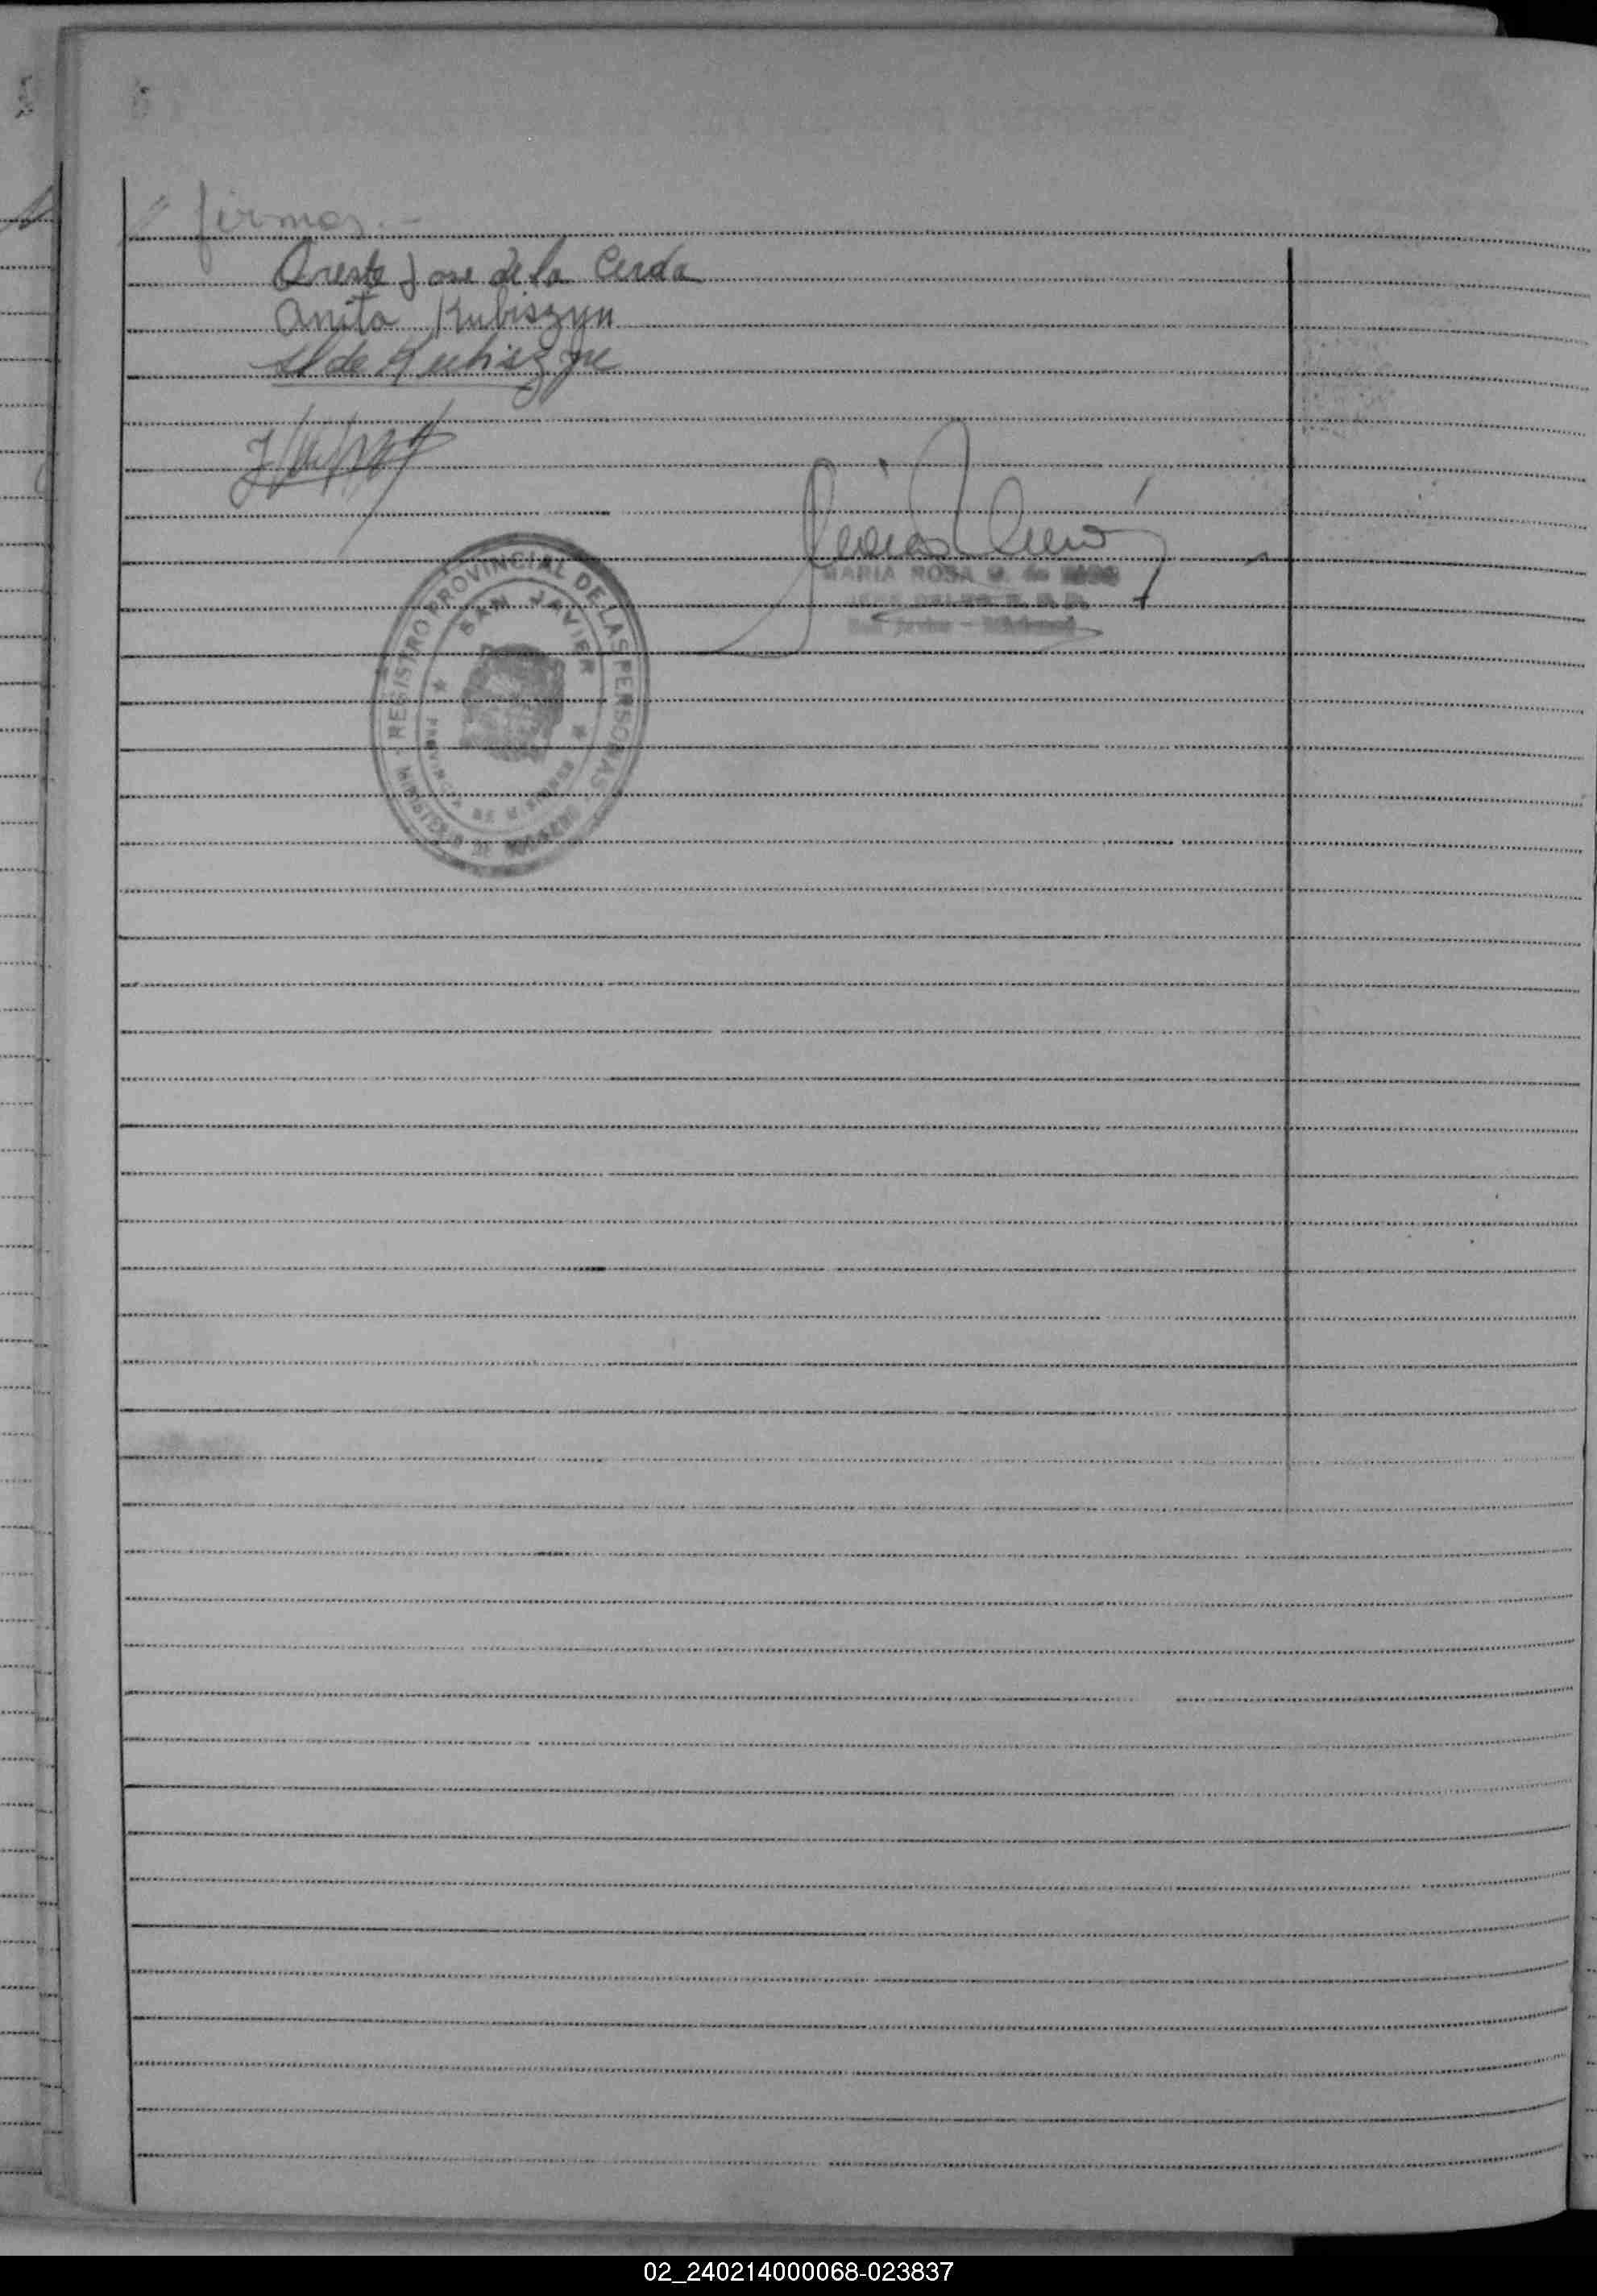 firmas.-
Oreste Jose de la Cerda
Anita Kubiszyn
de Kubiszyn
MARIA ROSA
REGISTRO PROVINCIAL DE LAS PERSONAS
SAN JAVIER
PROVINCIA DE MISIONES
MINISTERIO DE GOBIERNO
02_240214000068-023837